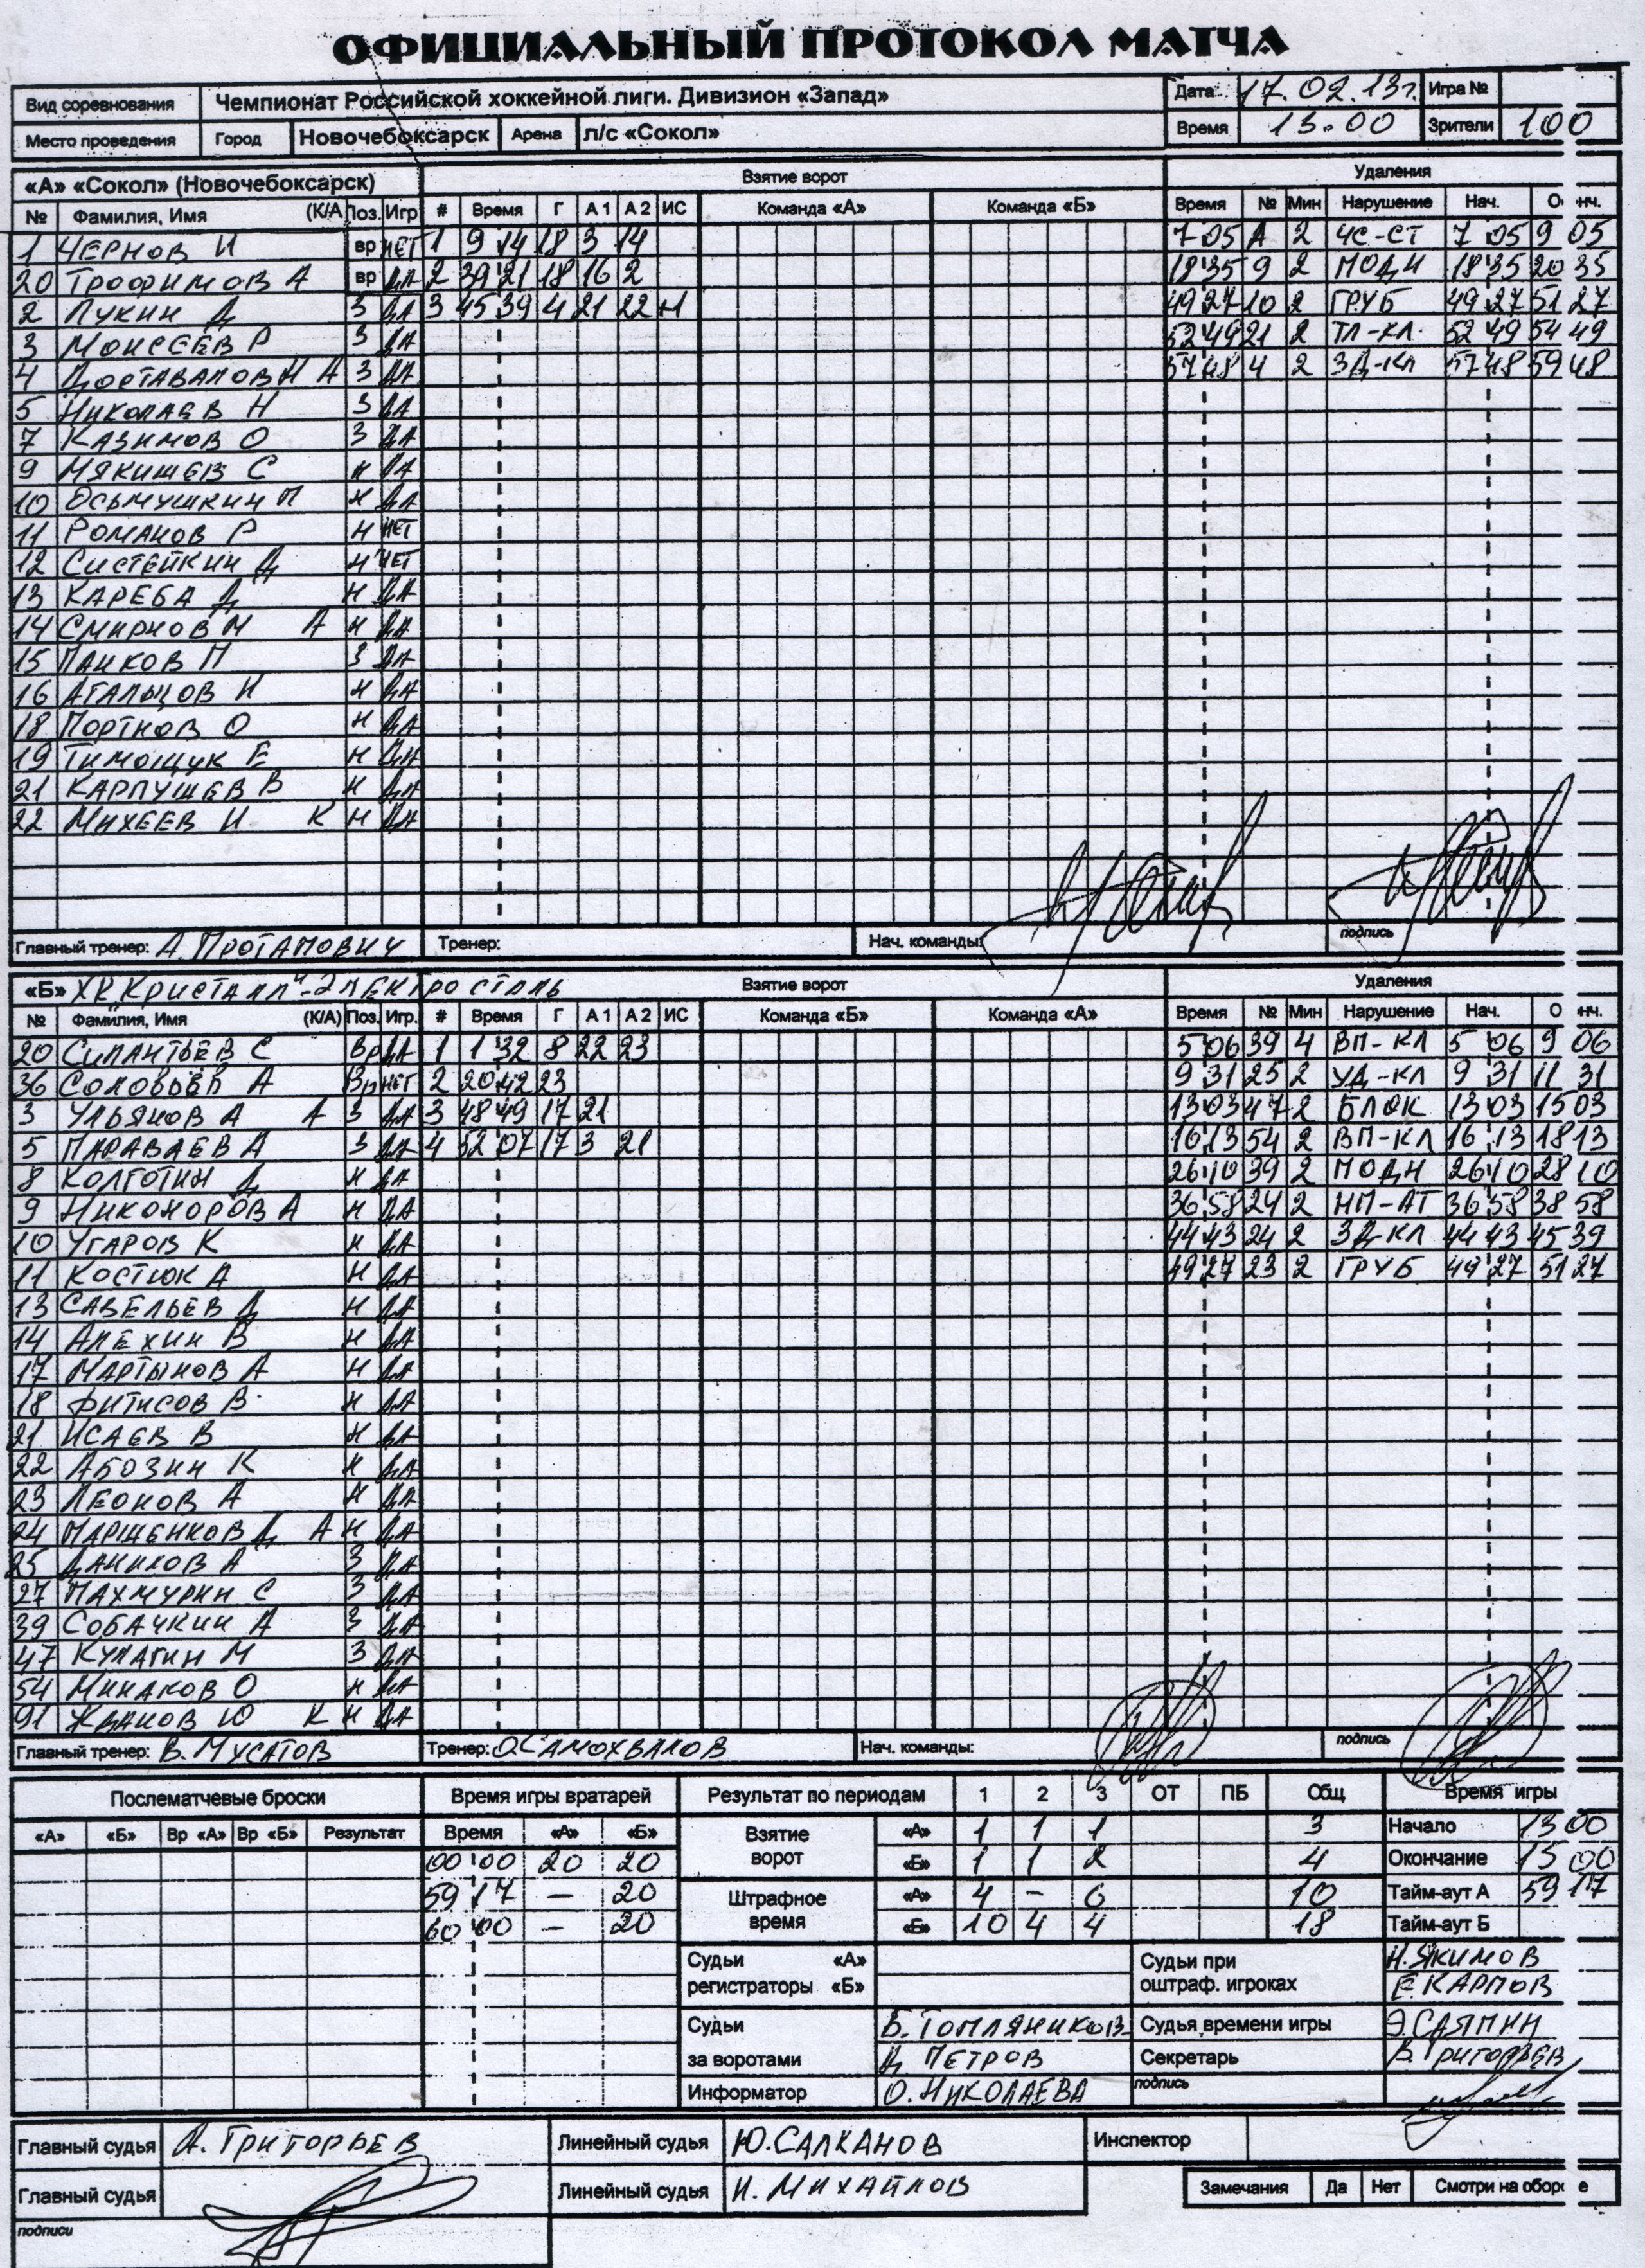 ОФИЦИАЛЬНЫЙ ПРОТОКОЛ МАТЧА
Вид соревнования Чемпионат Российской хоккейной лиги. Дивизион «Запад» Дата 17.02.13г. Игра №
Место проведения Город Новочебоксарск Арена л/с «Сокол» Время 13.00 Зрители 100
«А» «Сокол» (Новочебоксарск) Взятие ворот Удаления
№ Фамилия, Имя (К/А) Поз. Игр # Время Г А 1 А 2 ИС Команда «А» Команда «Б» Время № Мин Нарушение Нач. О нч.
1 ЧЕРНОВ И вр НЕТ 1 9 14 18 3 14 7 05 А 2 ЧС-СТ 7 05 9 05
20 ТРОФИМОВ А вр ДА 2 39 21 18 16 2 18 35 9 2 ПОДН 18 35 20 35
2 ЛУКИН Д З ДА 3 45 39 4 21 22 +1 49 27 10 2 ГРУБ 49 27 51 27
3 МОИСЕЕВ Р З ДА 52 49 21 2 ТЛ-КЛ 52 49 54 49
4 ДОСТАВАЛОВ Н А З ДА 57 48 4 2 ЗД-КЛ 57 48 59 48
5 НИКОЛАЕВ Н З ДА
7 КАЗИМОВ О З ДА
9 МЯКИШЕВ С Н ДА
10 ОСЬМУШКИН П Н ДА
11 РОМАНОВ Р Н НЕТ
12 СИСТЕЙКИН Д Н НЕТ
13 КАРЕБА Д Н ДА
14 СМИРНОВ М А Н ДА
15 ПАНКОВ П З ДА
16 АГАЛЬЦОВ Н Н ДА
18 ПОРТНОВ О Н ДА
19 ТИМОЩУК Е Н ДА
21 КАРПУШЕВ В Н ДА
22 МИХЕЕВ И К Н ДА
Главный тренер: А. ПРОТАПОВИЧ Тренер: Нач. команды: подпись
«Б» ХК "КРИСТАЛЛ"-ЭЛЕКТРОСТАЛЬ Взятие ворот Удаления
№ Фамилия, Имя (К/А) Поз. Игр. # Время Г А 1 А 2 ИС Команда «Б» Команда «А» Время № Мин Нарушение Нач. О нч.
20 СИЛАНТЬЕВ С Вр ДА 1 1 32 8 22 23 5 06 39 4 ВП-КЛ 5 06 9 06
36 СОЛОВЬЁВ А Вр НЕТ 2 20 42 23 9 31 25 2 УД-КЛ 9 31 11 31
3 УЛЬЯНОВ А А З ДА 3 48 49 17 21 13 03 47 2 БЛОК 13 03 15 03
5 ПАРАВАЕВ А З ДА 4 52 07 17 3 21 16 13 54 2 ВП-КЛ 16 13 18 13
8 КОЛГОТИН Д Н ДА 26 10 39 2 ПОДН 26 10 28 10
9 НИКОНОРОВ А Н ДА 36 58 24 2 НП-АТ 36 58 38 58
10 УГАРОВ К Н ДА 44 43 24 2 ЗД-КЛ 44 43 45 39
11 КОСТЮК А Н ДА 49 27 23 2 ГРУБ 49 27 51 27
13 САВЕЛЬЕВ Д Н ДА
14 АЛЕХИН В Н ДА
17 МАРТЫНОВ А Н ДА
18 ФИТИСОВ В Н ДА
21 ИСАЕВ В Н ДА
22 АБОЗИН К Н ДА
23 ЛЕОНОВ А Н ДА
24 ПАРШЕНКОВ Д А Н ДА
25 ДАНИЛОВ А З ДА
27 ПАХМУРИН С З ДА
39 СОБАЧКИН А З ДА
47 КУЛАГИН М З ДА
54 МИНАКОВ О Н ДА
91 ЖВАНОВ Ю К Н ДА
Главный тренер: В. МУСАТОВ Тренер: О.САМОХВАЛОВ Нач. команды: подпись
Послематчевые броски Время игры вратарей Результат по периодам 1 2 3 ОТ ПБ Общ Время игры
«А» «Б» Вр «А» Вр «Б» Результат Время «А» «Б» Взятие ворот «А» 1 1 1 3 Начало 13 00
00 00 20 20 «Б» 1 1 2 4 Окончание 15 00
59 17 – 20 Штрафное время «А» 4 – 6 10 Тайм-аут А 59 17
60 00 – 20 «Б» 10 4 4 18 Тайм-аут Б
Судьи «А» Судьи при Н.ЯКИМОВ
регистраторы «Б» оштраф. игроках Е.КАРПОВ
Судьи Б.ТОПЛЯНИКОВ Судья времени игры Э.САЯПИН
за воротами Д. ПЕТРОВ Секретарь В.ГРИГОРЬЕВ
Информатор О.НИКОЛАЕВА подпись
Главный судья А. ГРИГОРЬЕВ Линейный судья Ю.САЛКАНОВ Инспектор
Главный судья Линейный судья И. МИХАЙЛОВ Замечания Да Нет Смотри на оборо е
подписи